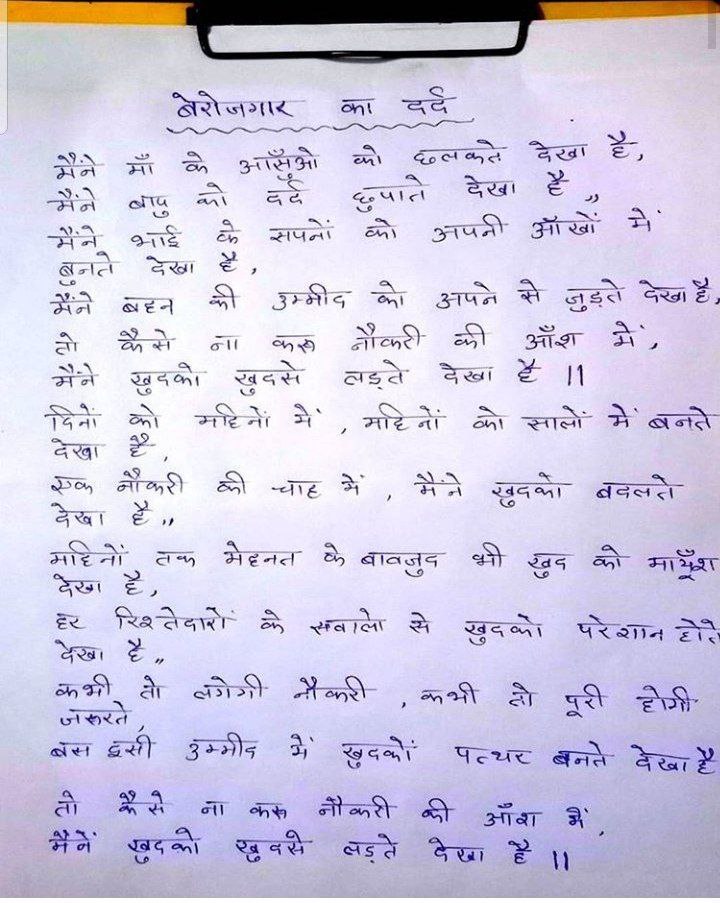 बेरोजगार का दर्द
मैंने माँ के आसुँओ को छलकते देखा है,
मैंने बापु को दर्द छुपाते देखा है,,
मैंने भाई के सपनों को अपनी आँखों में
बुनते देखा है,
मैंने बहन की उम्मीद को अपने से जुड़ते देखा है,
तो कैसे ना करू नौकरी की आँश में,
मैंने खुदको खुदसे लड़ते देखा है ||
दिनों को महिनों में, महिनों को सालों में बनते
देखा है,
एक नौकरी की चाह में, मैंने खुदको बदलते
देखा है,,
महिनों तक मेहनत के बावजुद भी खुद को मायूँश
देखा है,
हर रिश्तेदारों के सवालो से खुदको परेशान होते
देखा है,,
कभी तो लगेगी नौकरी, कभी तो पूरी होगी
जरूरते,
बस इसी उम्मीद में खुदकों पत्थर बनते देखा है
तो कैसे ना करू नौकरी की आँश में,
मैंनें खुदको खुदसे लड़ते देखा है ||